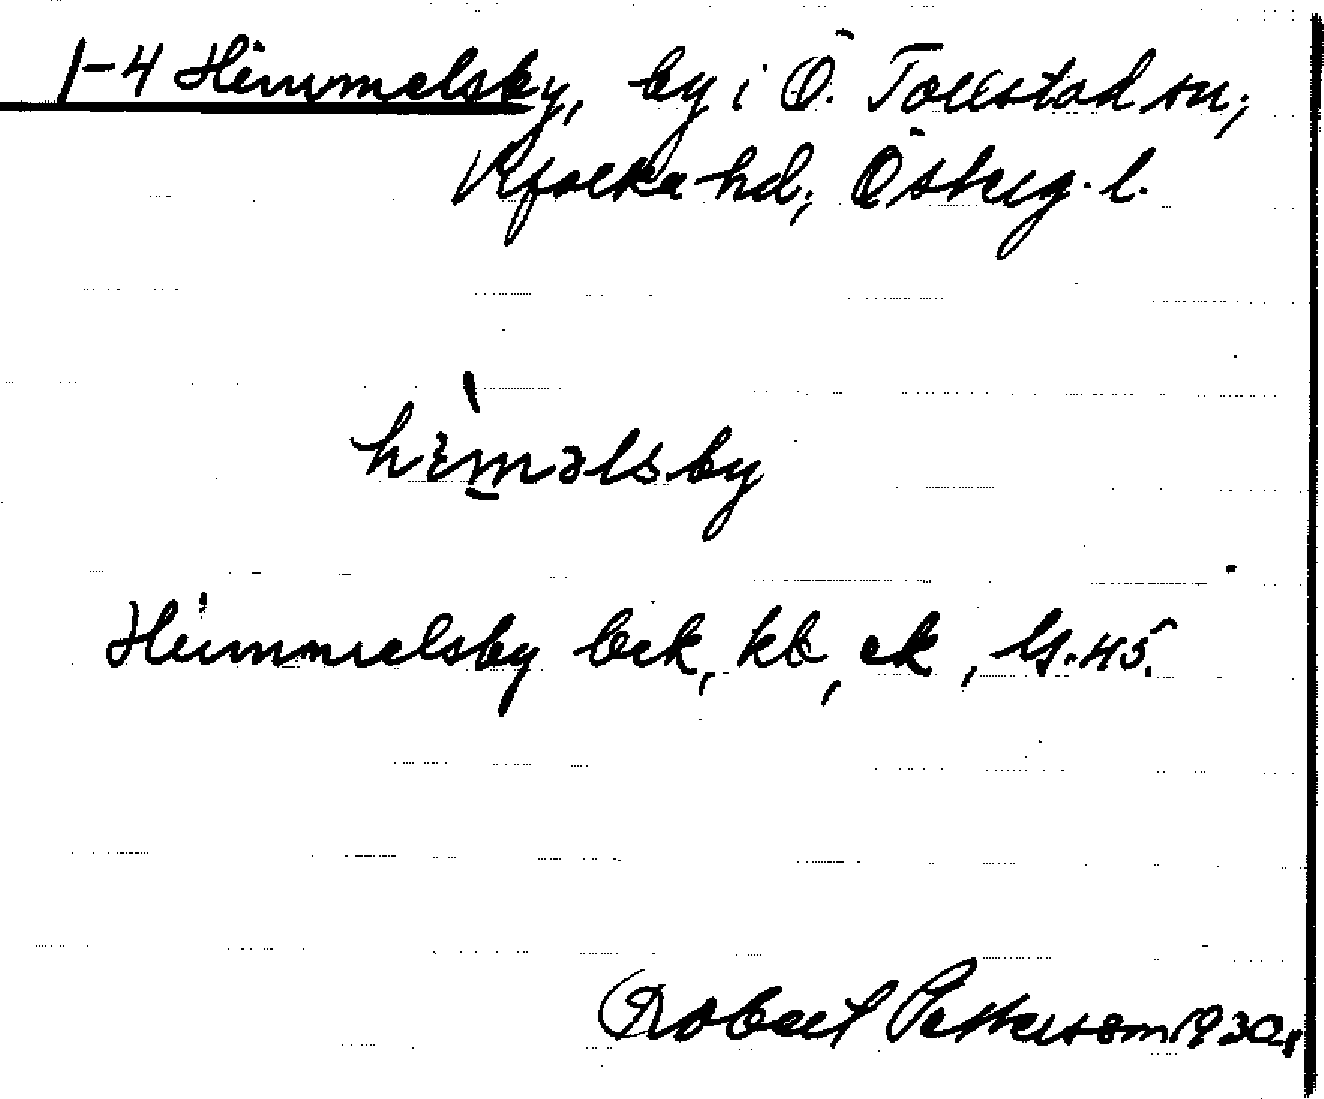 1-4 Himmelsby, by i Ö. Tollstad sn,
Vifolka hd, Österg. l.
himəlsby
Himmelsby bek, kb, ek, Gs. 45.
Robert Pettersson 1930.